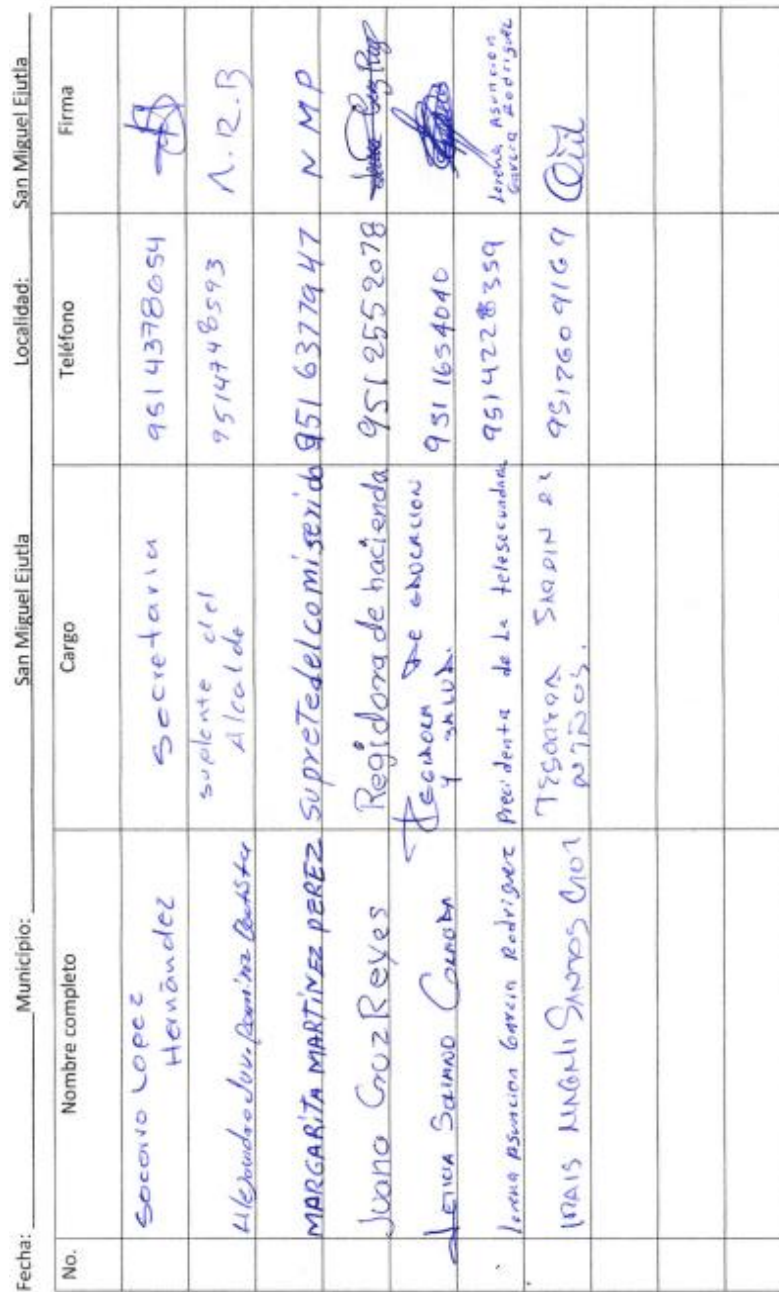 Fecha: Municipio: San Miguel Ejutla Localidad: San Miguel Ejutla
No. Nombre completo Cargo Teléfono Firma
Socorro Lopez Hernández Secretaria 951 4378654
Alejandro Juv. Ramírez Bautista suplente del Alcalde 9514748593 A.R.B
MARGARITA MARTÍNEZ PEREZ SupreTe del comiserido 951 6377947 N M P
Juana Cruz Reyes Regidora de hacienda 951 255 2078
LETICIA SORIANO REGIDORA DE EDUCACION Y SALUD. 951 1654040
Lorena Asuncion Garcia Rodriguez Precidenta de la telesecundaria 951 4228359 Lorena Asuncion Garcia Rodriguez
IRAIS MAGALI SANTOS CRUZ TESORERA JARDIN DE NIÑOS. 9517609169